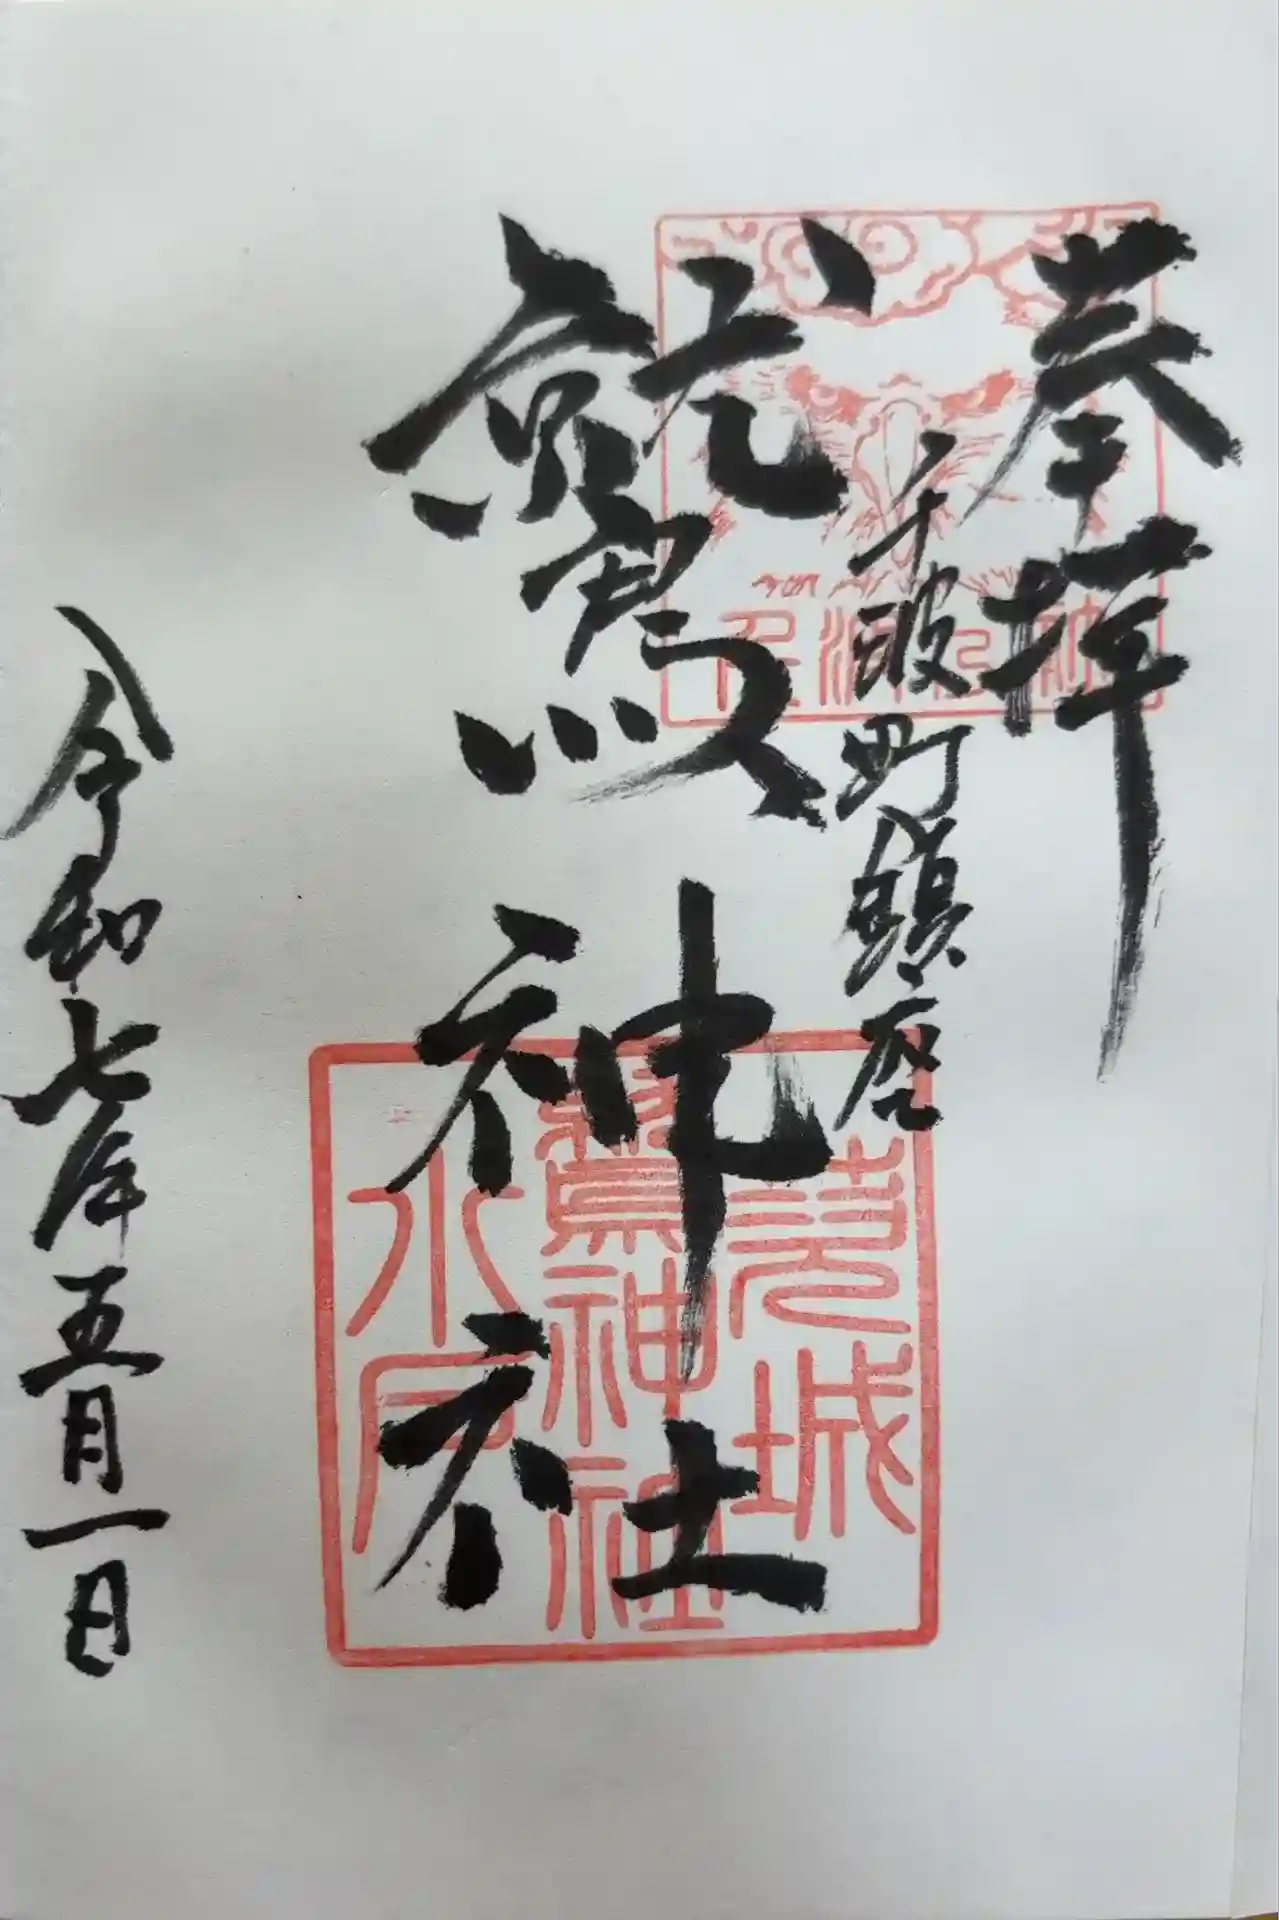 奉拝
千波町鎮座
鷲神社
令和七年五月一日
茨城
鷲神社
水戸